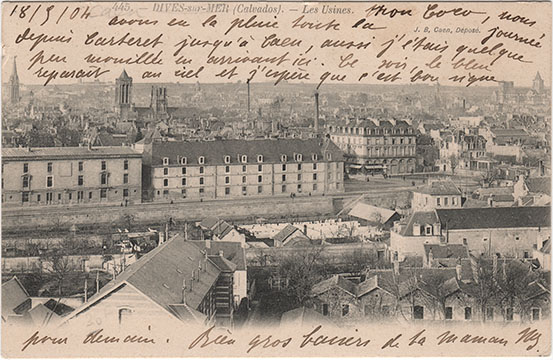 18/9/04
445. - DIVES-sur-MER (Calvados). - Les Usines.
J. B. Caen, Déposé.
Mon Coco, nous
avons eu la pluie toute la journée
depuis Carteret jusqu'à Caen, aussi j'étais quelque
peu mouillé en arrivant ici. Ce soir, le bleu
reparait au ciel et j'espère que c'est bon signe
pour demain. Bien gros baisers de ta maman